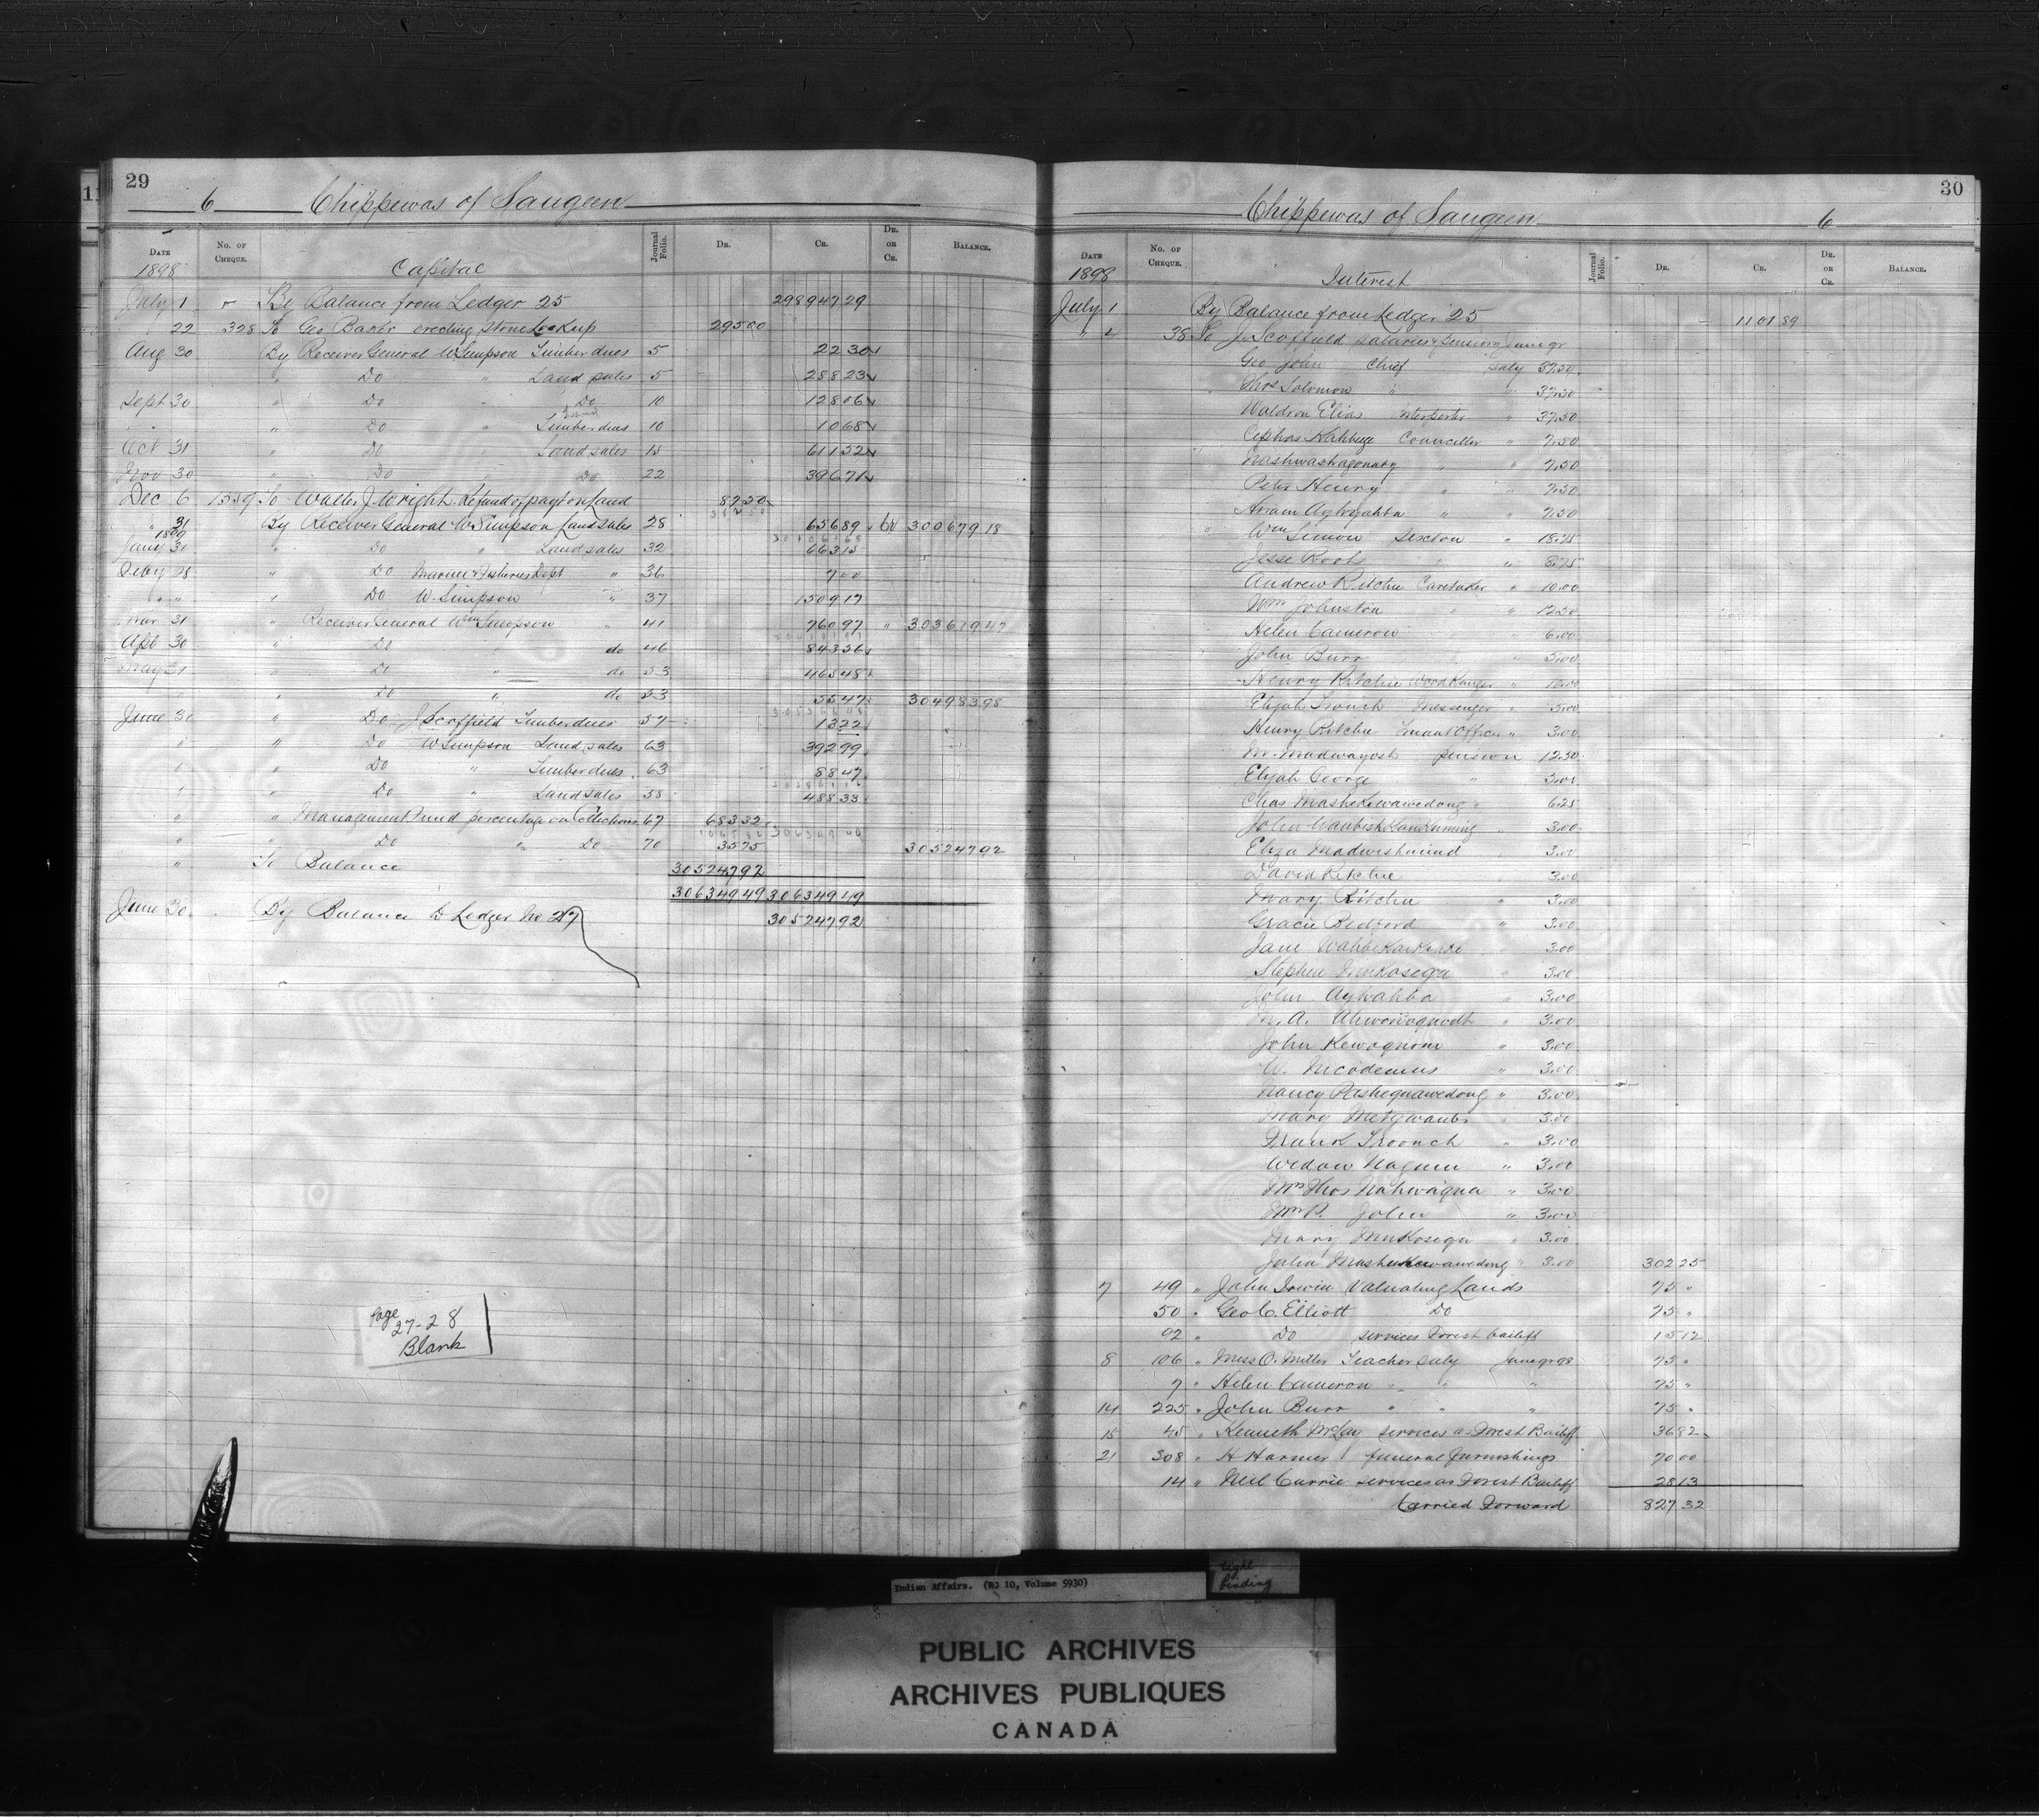 29
6 Chippewas of Saugeen
DATE No. OF CHEQUE. Journal Folio. DR. CR. DR. OR CR. BALANCE.
1898 Capital
July 1 By Balance from Ledger 25 298947 29
22 328 To Geo Baker erecting stone Lockup 295 00
Aug 30 By Receiver General W Simpson Timber dues 5 22 30
" Do " Land sales 5 288 23
Sept 30 " Do " Do 10 128 06
" " Do " Timber dues 10 10 68
Oct 31 " Do " Land sales 15 611 52
Nov 30 " Do " Do 22 396 71
Dec 6 1559 To Walter J Wright Refund of payt on Land 87 50
" 31 By Receiver General W Simpson Land sales 28 656 89 Cr 300679 18
1899
Jany 30 " Do " Land sales 32 663 15
Feby 28 " Do Marine & Fisheries Dept " 36 7 00
" " " Do W. Simpson " 37 1509 17
Mar 31 " Receiver General Wm Simpson " 41 760 97 " 303619 47
Apl 30 " Do " do 46 843 56
May 31 " Do " do 53 465 48
" " Do " do 53 55 47 304983 98
June 30 " Do J Scoffield Timber dues 57 13 22
" " Do W Simpson Land sales 63 392 99
" " Do " Timber dues 63 88 47
" " Do " Land sales 58 488 33
" " Management Fund percentage on Collections 67 683 32
" " Do " Do 70 35 75 305247 92
" To Balance 305247 92
306349 49 306349 49
June 30 By Balance to Ledger No 27 305247 92
Page
27-28
Blank
30
Chippewas of Saugeen 6
DATE No. OF CHEQUE. Journal Folio. DR. CR. DR. OR CR. BALANCE.
1898 Interest
July 1 By Balance from Ledger 25 1101 89
" 4 38 To J. Scoffield salaries & Pensions June qr
Geo John Chief saly 37.50
Thos Solomon " " 37.50
Waldron Elias Interpreter " 37.50
Cephas Kahbege Councillor " 7.50
Nashwashagonaby " " 7.50
Peter Henry " " 7.50
" " 7.50
Wm Simon Sexton " 18.75
Jesse Root " " 8.75
Andrew Ritchie Caretaker " 10.00
Wm Johnston " " 12.50
Helen Cameron 6.00
John Burr 5.00
Henry Ritchie Wood Ranger " 10.00
Elijah Troonch Messenger " 5.00
Henry Ritchie Truant Officer " 3.00
M. Madwayosh pension 12.50
Elijah George " 3.00
Chas Mashekewawedong " 6.25
John 3.00
Eliza Madwishmind 3.00
David Ritchie 3.00
Mary Ritchie " 3.00
Gracie Bedford " 3.00
Jane 3.00
Stephen Mukosega " 3.00
John Aywahba " 3.00
M. A. " 3.00
John Kewaquom " 3.00
W. Nicodemus " 3.00
Nancy Pashequawedong " 3.00
Mary Metigwaub " 3.00
Frank Troonch " 3.00
Widow Nagum " 3.00
Mrs Thos Nahwaiqua " 3.00
Mrs P. John " 3.00
Mary Mukosega " 3.00
Julia Mashekewawedong " 3.00 302 25
7 49 " John Irwin Valuating Lands 75 "
50 " Geo C. Elliott Do 75 "
92 " Do services Forest bailiff 15 12
8 106 " Miss O. Miller Teacher saly June qr 98 75 "
7 " Helen Cameron " " " 75 "
14 225 " John Burr " " " 75 "
15 45 " Kenneth McLay services as Forest Bailiff 36 82
21 308 " H Harmer funeral furnishings 70 00
14 " Neil Currie services as Forest Bailiff 28 13
Carried Forward 827 32
Indian Affairs. (RG 10, Volume 5930)
tight
binding
PUBLIC ARCHIVES
ARCHIVES PUBLIQUES
CANADA